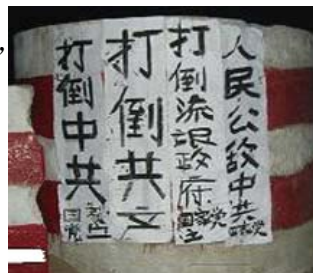 人民公敌中共
打倒流氓政府
打倒共产
打倒中共